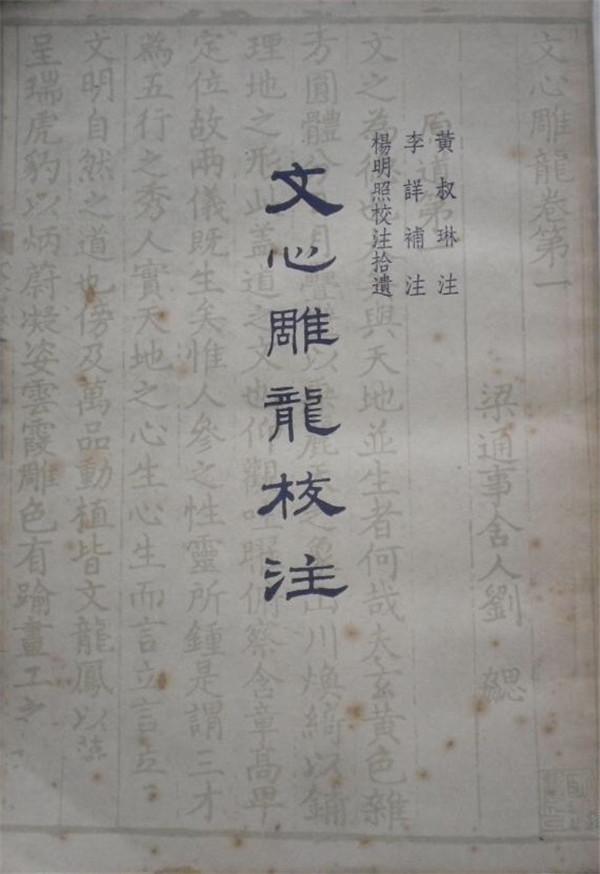 黃叔琳注
李詳補注
楊明照校注拾遺
文心雕龍校注
文心雕龍卷第一
梁通事舍人劉 勰
原道第一
文之為德也與天地並生者何哉夫玄黃色雜
方圓體分日月疊以麗之象山川煥綺以鋪
理地之形此蓋道之文也仰觀吐曜俯察含章高卑
定位故兩儀既生矣惟人參之性靈所鍾是謂三才
為五行之秀人實天地之心生心生而言立言立
文明自然之道也傍及萬品動植皆文龍鳳以藻
呈瑞虎豹以炳蔚凝姿雲霞雕色有踰畫工之